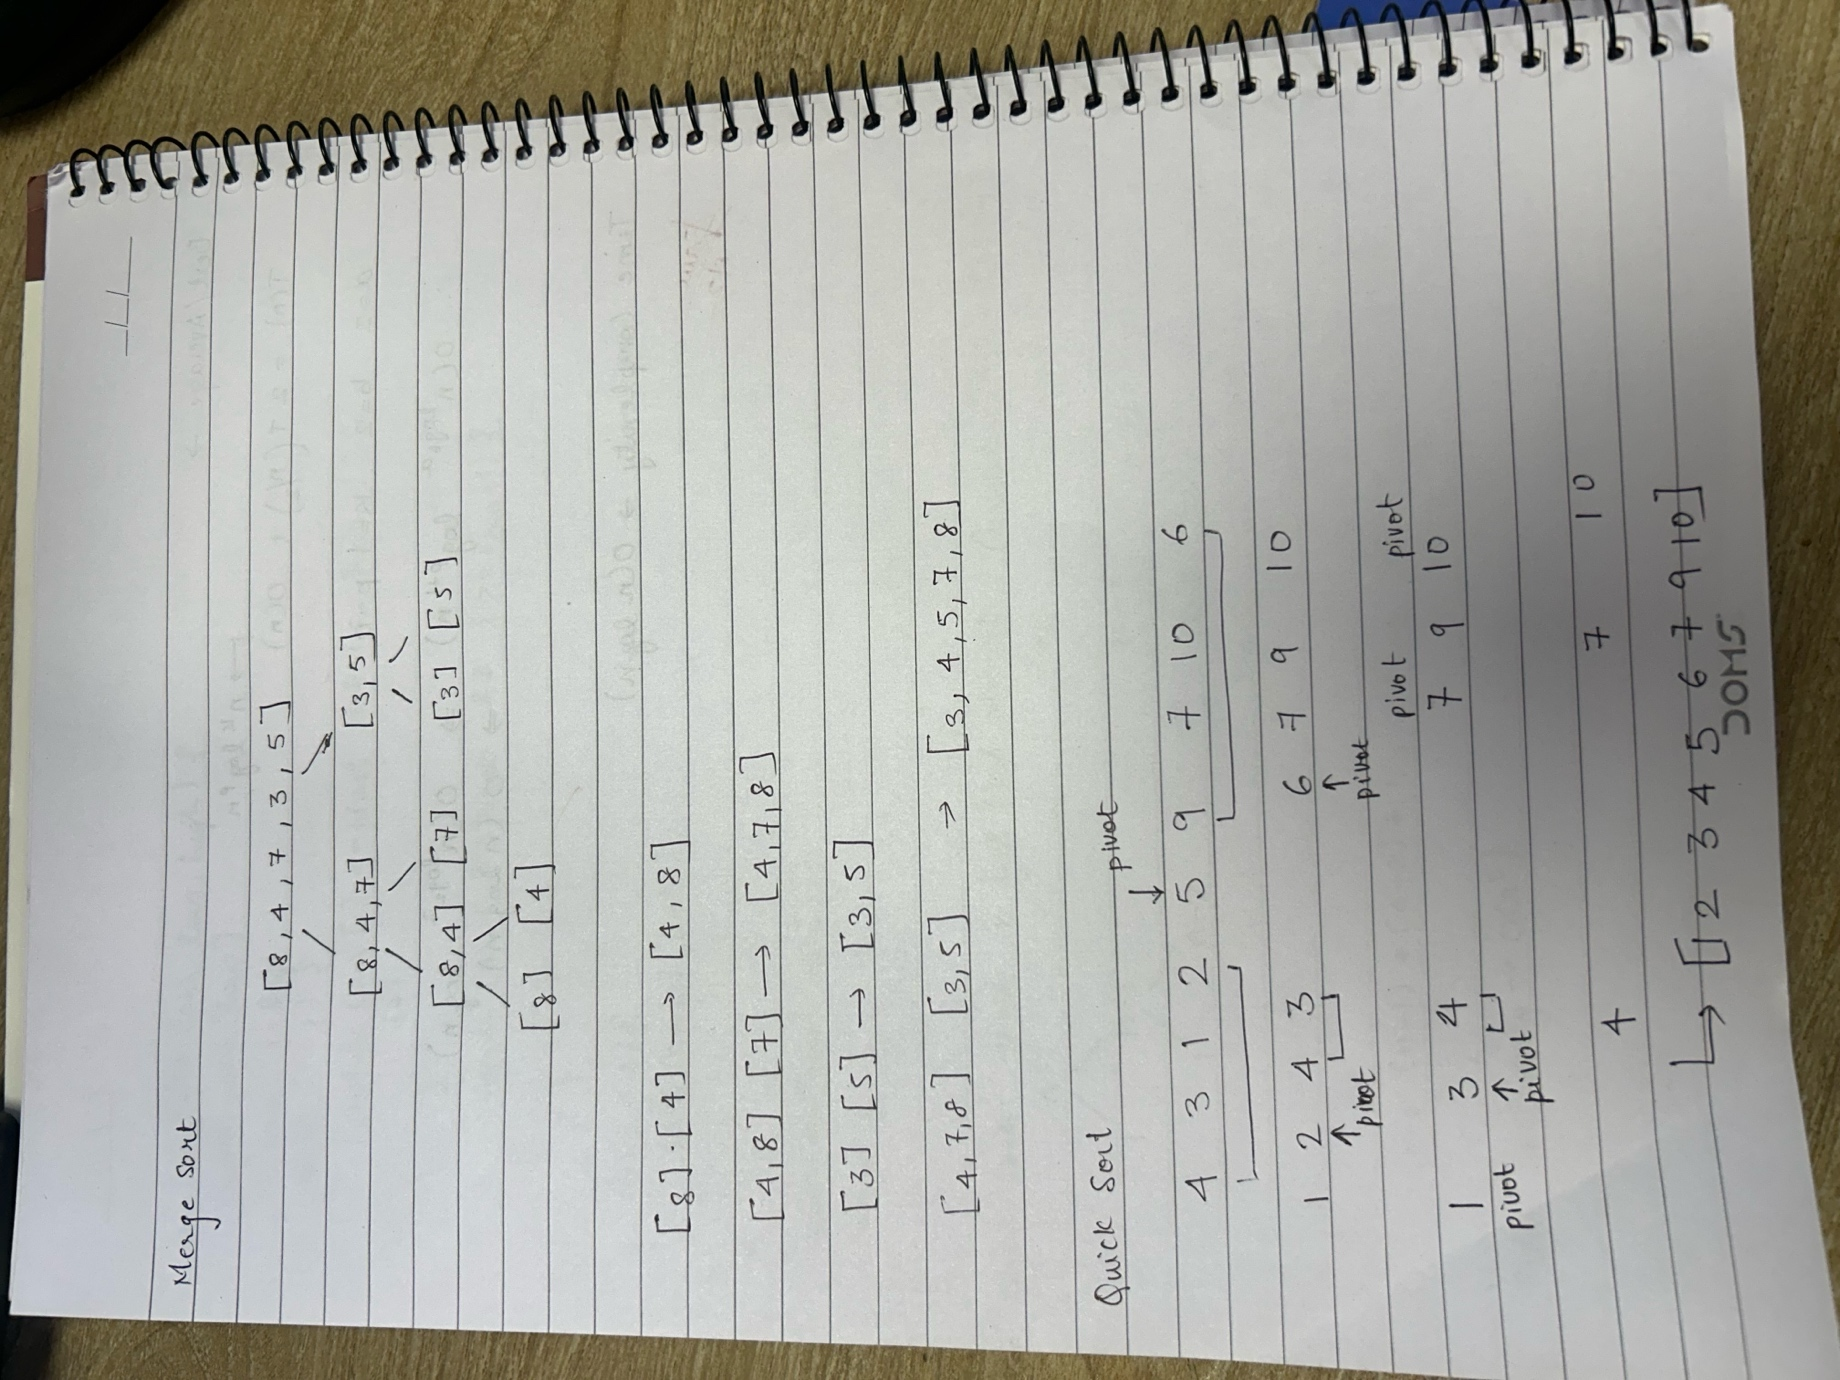 Merge Sort
[8,4,7,3,5]
[8,4,7] [3,5]
[8,4] [7] [3] [5]
[8] [4]
[8].[4] → [4,8]
[4,8] [7] → [4,7,8]
[3] [5] → [3,5]
[4,7,8] [3,5] → [3,4,5,7,8]
Quick Sort
↓ pivot
4 3 1 2 5 9 7 10 6
1 2 4 3 6 7 9 10
↑ pivot ↑ pivot
pivot pivot
1 3 4 7 9 10
pivot ↑ pivot
4 7 10
↳ [1 2 3 4 5 6 7 9 10]
JOMS